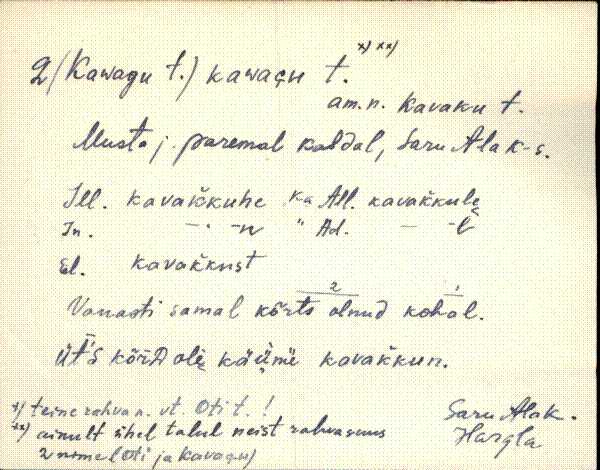 2/(Kawagu t.) kawagu t. x) xx)
am.n. Kavaku t.
Musta j. paremal kaldal, Saru Alak-s.
Ill. kavaǩkuhe ka All. kavaǩkulę
In. —"— -n " Ad. — -l
El. kavaǩkust
Vanasti samal kõrts olnud kohal.
2 1
üt's kõrD olę käümę kavaǩkun.
x) teine rahva n. vt. Oti t. !
xx) ainult ühel talul neist rahvasuus
2 nime (Oti ja Kavagu)
Saru Alak.
Hargla